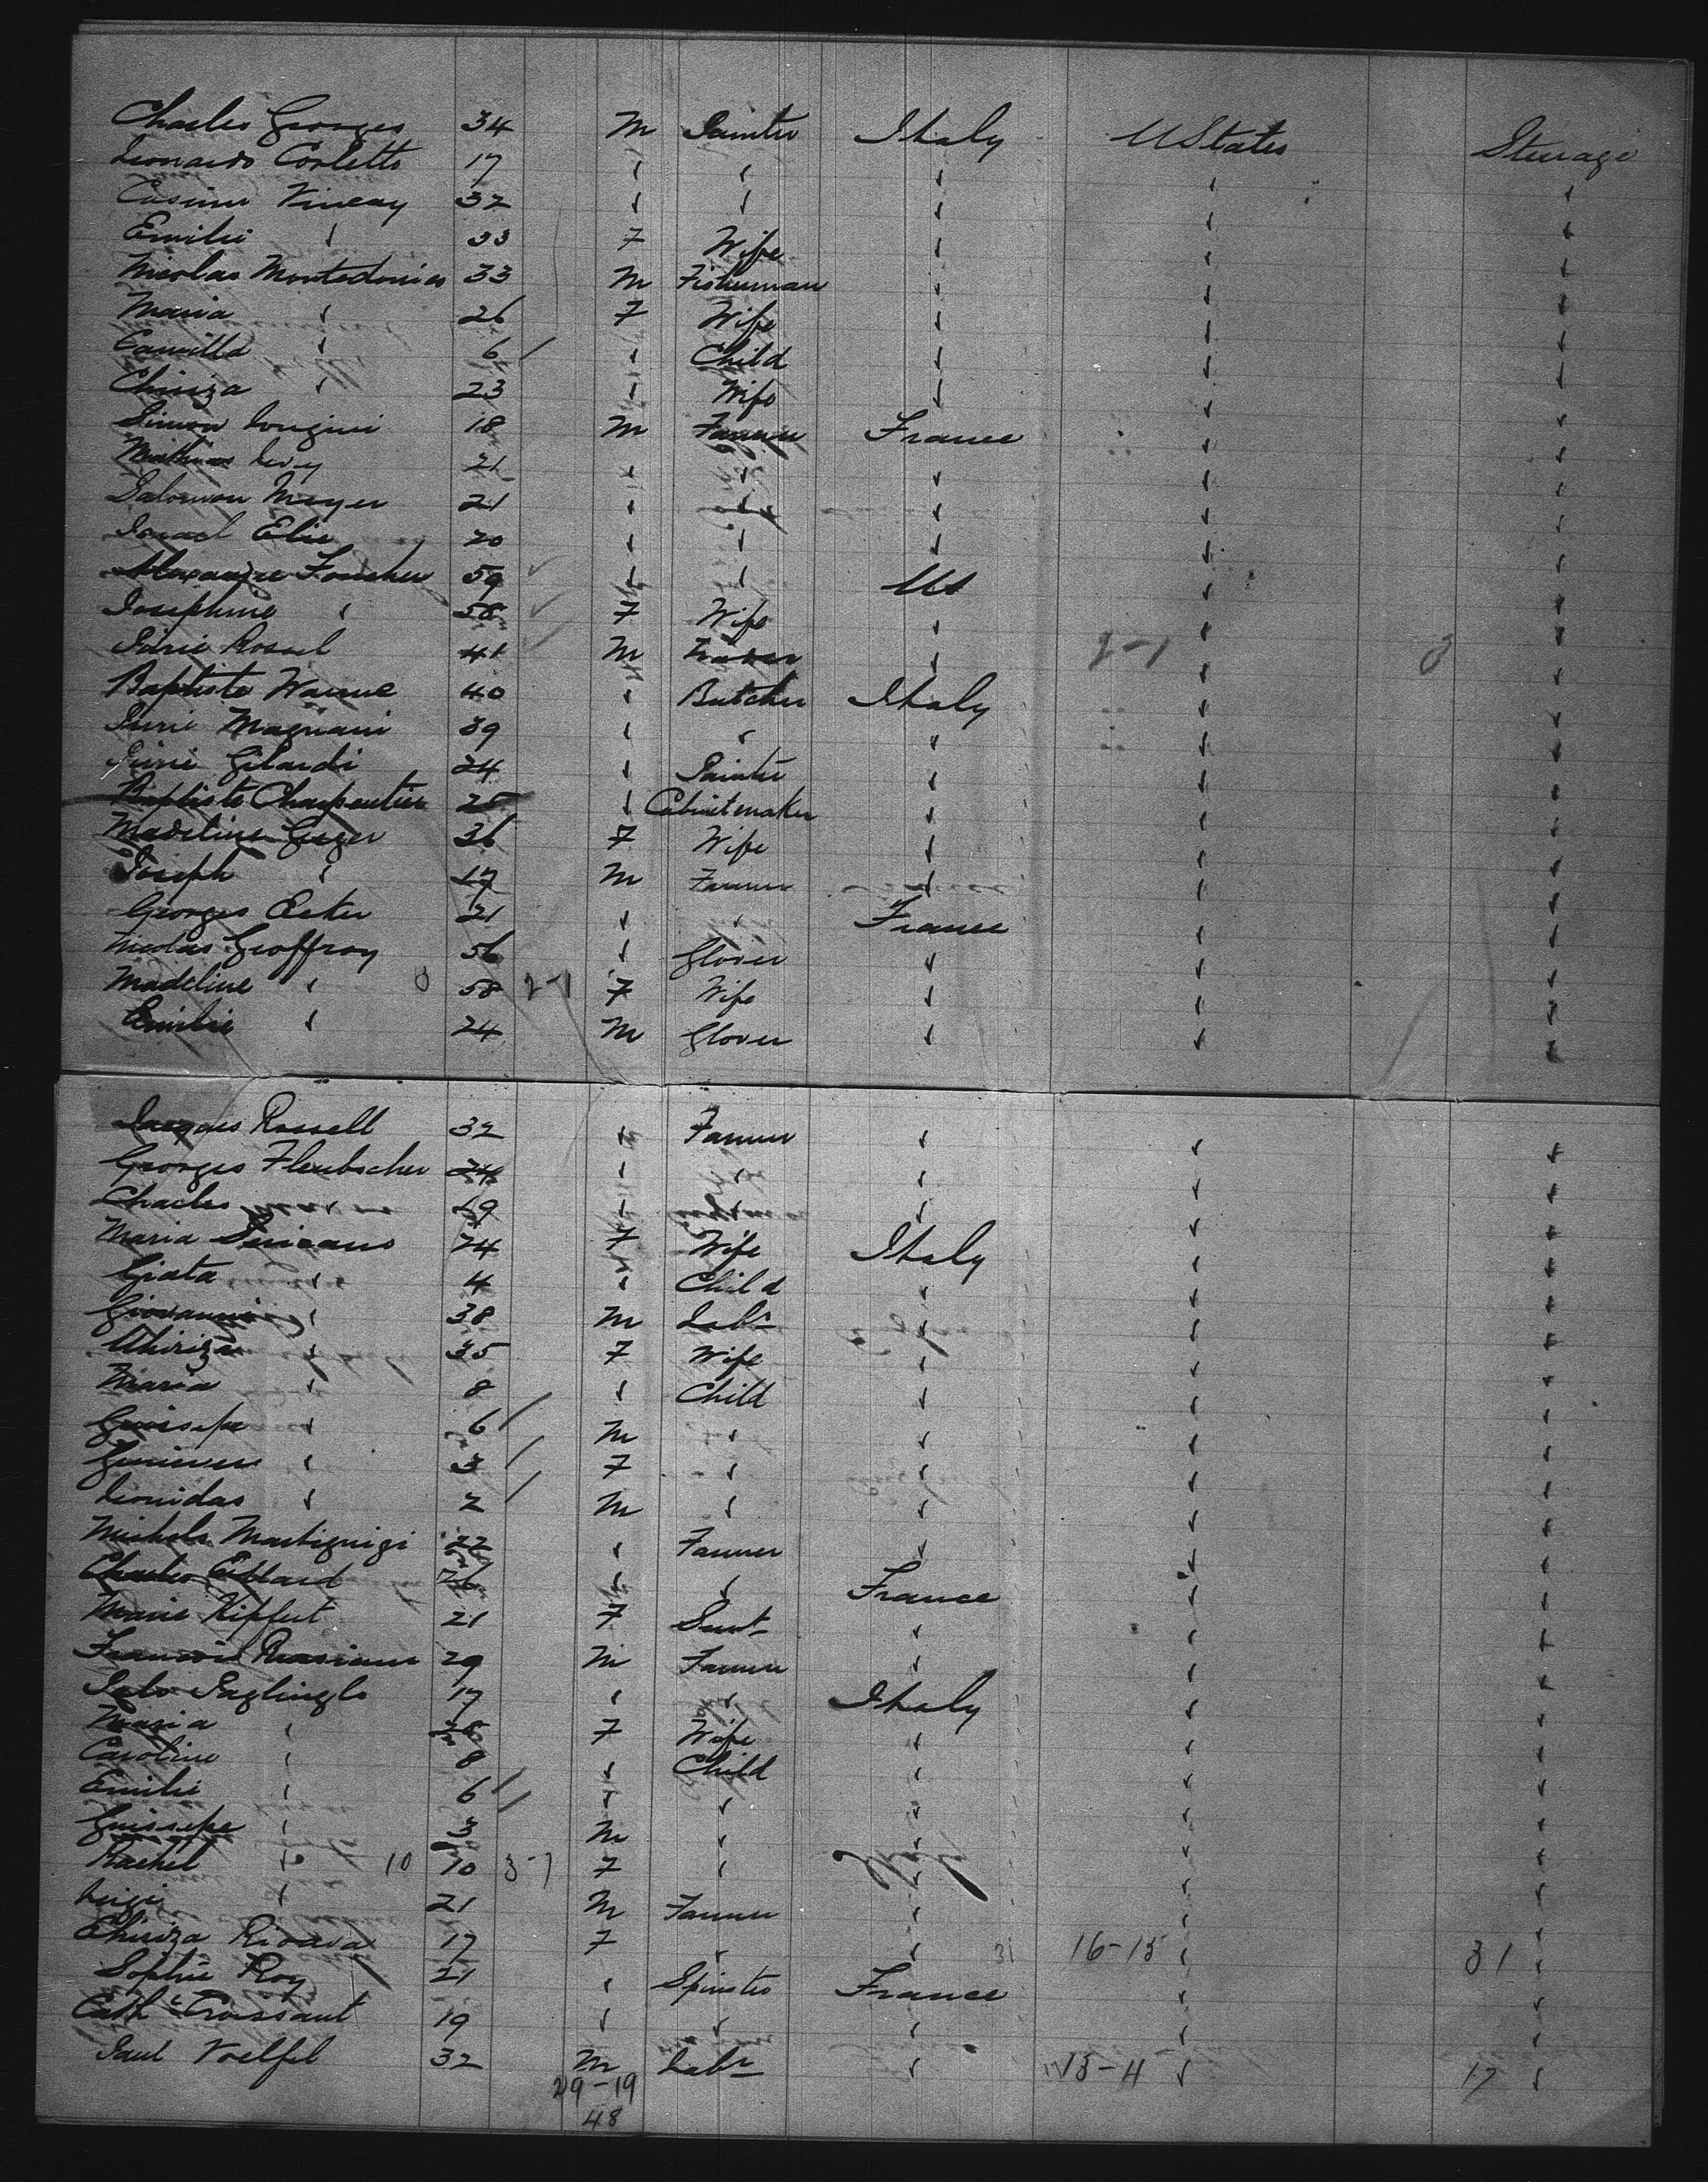 Charles Georges 34 M Painter Italy UStates Steerage
Leonardo Corletto 17 " " " " "
Casimir Vincay 32 " " " " "
Emilie " 33 F Wife " " "
Nicolas Montedonico 33 M Fisherman " " "
Maria " 26 F Wife " " "
Camilla " 6 / " Child " " "
Chiriza " 23 " Wife " " "
Simon 18 M Farmer France " "
Mathias Levy 21 " " " " "
Salomon Meyer 21 " " " " "
Israel Elie 20 " " " " "
Alexandre Foucher 59 " " US " "
Josephine " 58 F Wife " " "
Pierre Rossel 41 M " 2-1 " 3 "
Baptiste 40 " Butcher Italy " "
Pierre Magnani 39 " " " " "
Pierre Gilardi 24 " Painter " " "
Baptiste Charpentier 25 " Cabinetmaker " " "
Madeline Geiger 36 F Wife " " "
Joseph " 17 M Farmer " " "
Georges 21 " " France " "
Nicolas Geoffroy 56 " Glover " " "
Madeline " 0 58 2-1 F Wife " " "
Emilie " 24 M Glover " " "
Jacques Rossell 32 " Farmer " " "
Georges Fleubscher 24 " " " " "
Charles " 19 " " " " "
Maria 24 F Wife Italy " "
Giata " 4 " Child " " "
Giovanni " 38 M Labr " " "
Chiriza " 35 F Wife " " "
Maria " 8 " Child " " "
Guisepe " 6 / M " " " "
" 3 / F " " " "
Leonidas " 2 / M " " " "
Michele Martignigi 22 " Farmer " " "
Charles 26 " " France " "
Marie Kipfert 21 F Servt " " "
Francois 29 M Farmer " " "
17 " " Italy " "
Maria " F Wife " " "
Caroline " 8 " Child " " "
Emilie " 6 // " " " " "
Guissepe " 3 M " " " "
Rachel " 10 10 3-7 F " " " "
Luigi " 21 M Farmer " " "
Chiriza 17 F " " 31 16-15 " 31 "
Sophie Roy 21 " Spinster France " "
Cath Troissant 19 " " " " "
Paul Voelfel 32 M Labr " 13-4 " 17 "
29-19
48